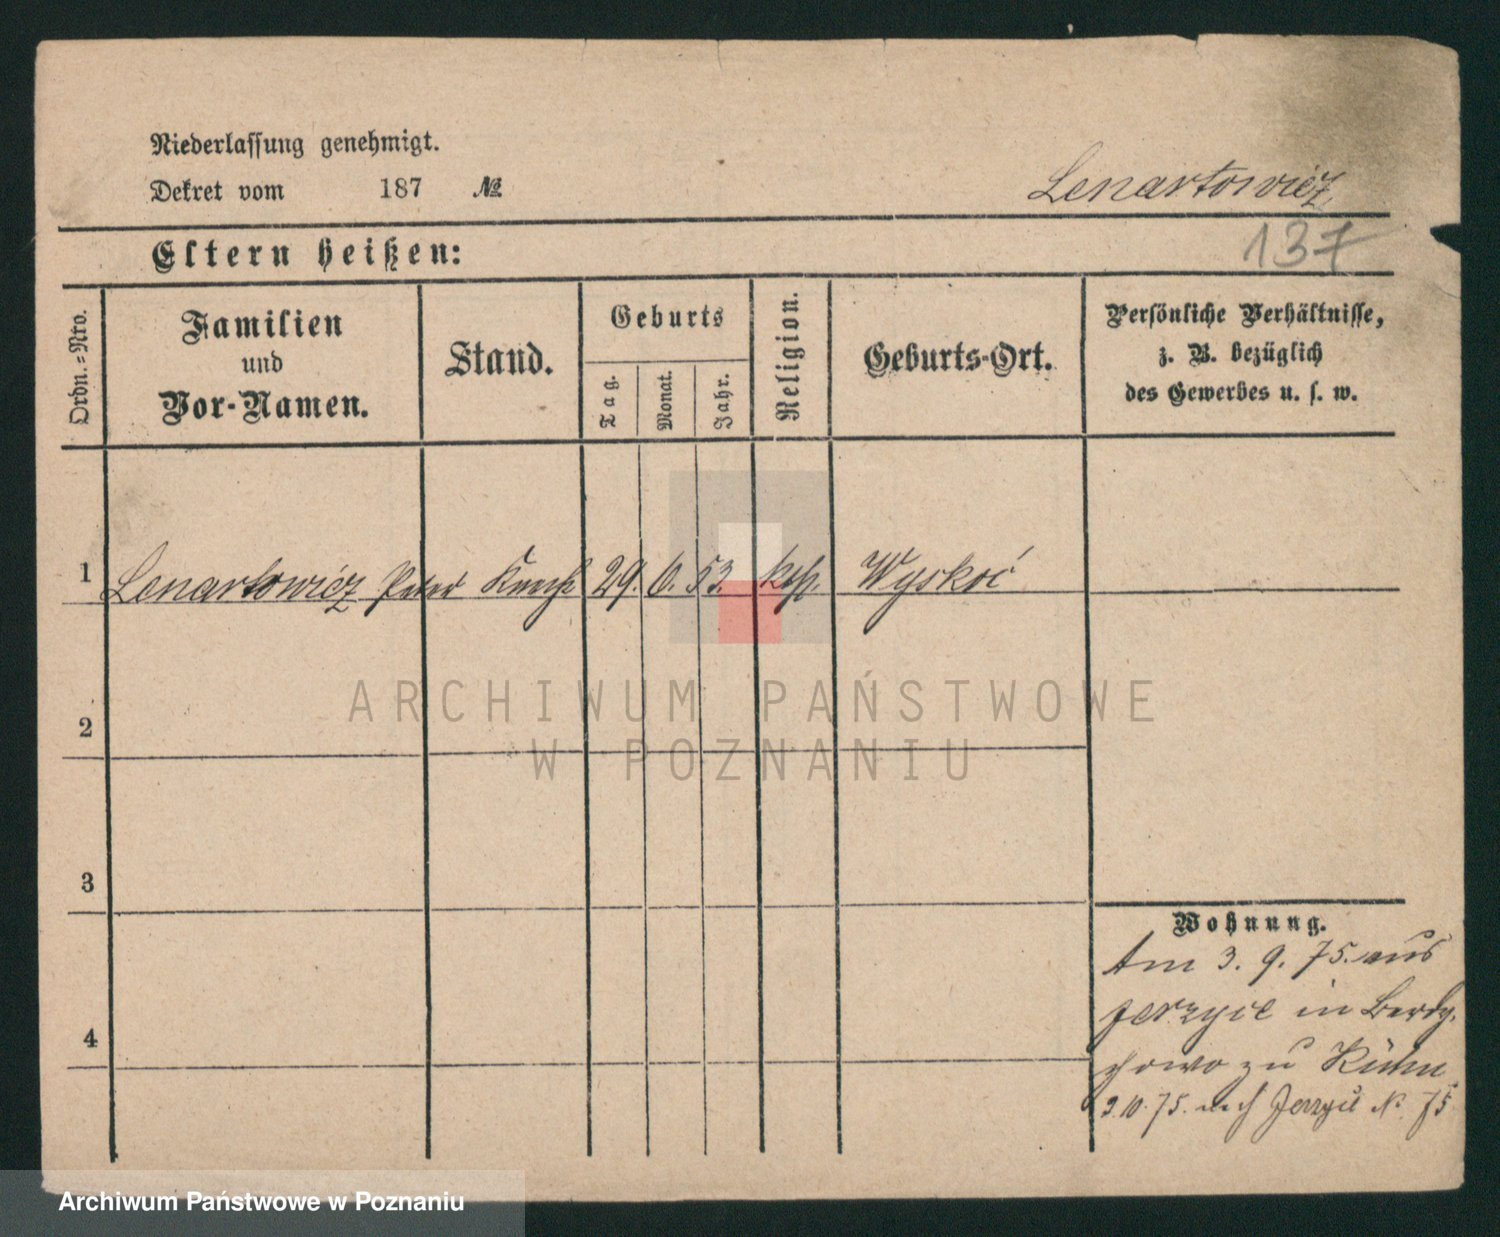 Niederlassung genehmigt.
Dekret vom 187 №
Lenartowicz
137
Eltern heißen:
Ordn.-Nro.
Familien
und
Vor-Namen.
Stand.
Geburts
Tag.
Monat.
Jahr.
Religion.
Geburts-Ort.
Persönliche Verhältnisse,
z. B. bezüglich
des Gewerbes u. s. w.
1 Lenartowicz Peter Knecht 29. 6. 53. kth. Wyskoć
2
3
4
Wohnung.
Am 3. 9. 75. aus
Jerzyce in Berdy-
chowo zu Kühn
9.10.75. nach Jerzyce N. 75
ARCHIWUM PAŃSTWOWE
W POZNANIU
Archiwum Państwowe w Poznaniu